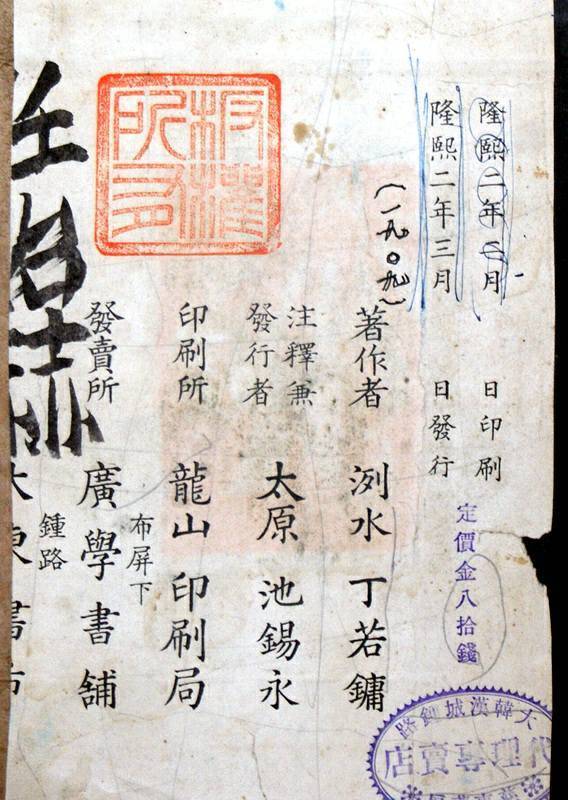 隆熙二年二月 日印刷
定價金八拾錢
隆熙二年三月 日發行
(一九〇九)
著作者 洌水 丁若鏞
注釋兼
發行者 太原 池錫永
印刷所 龍山 印刷局
布屏下
發賣所 廣學書舖
鍾路
大東書市
板權
所有
大韓漢城鍾路
代理專賣店